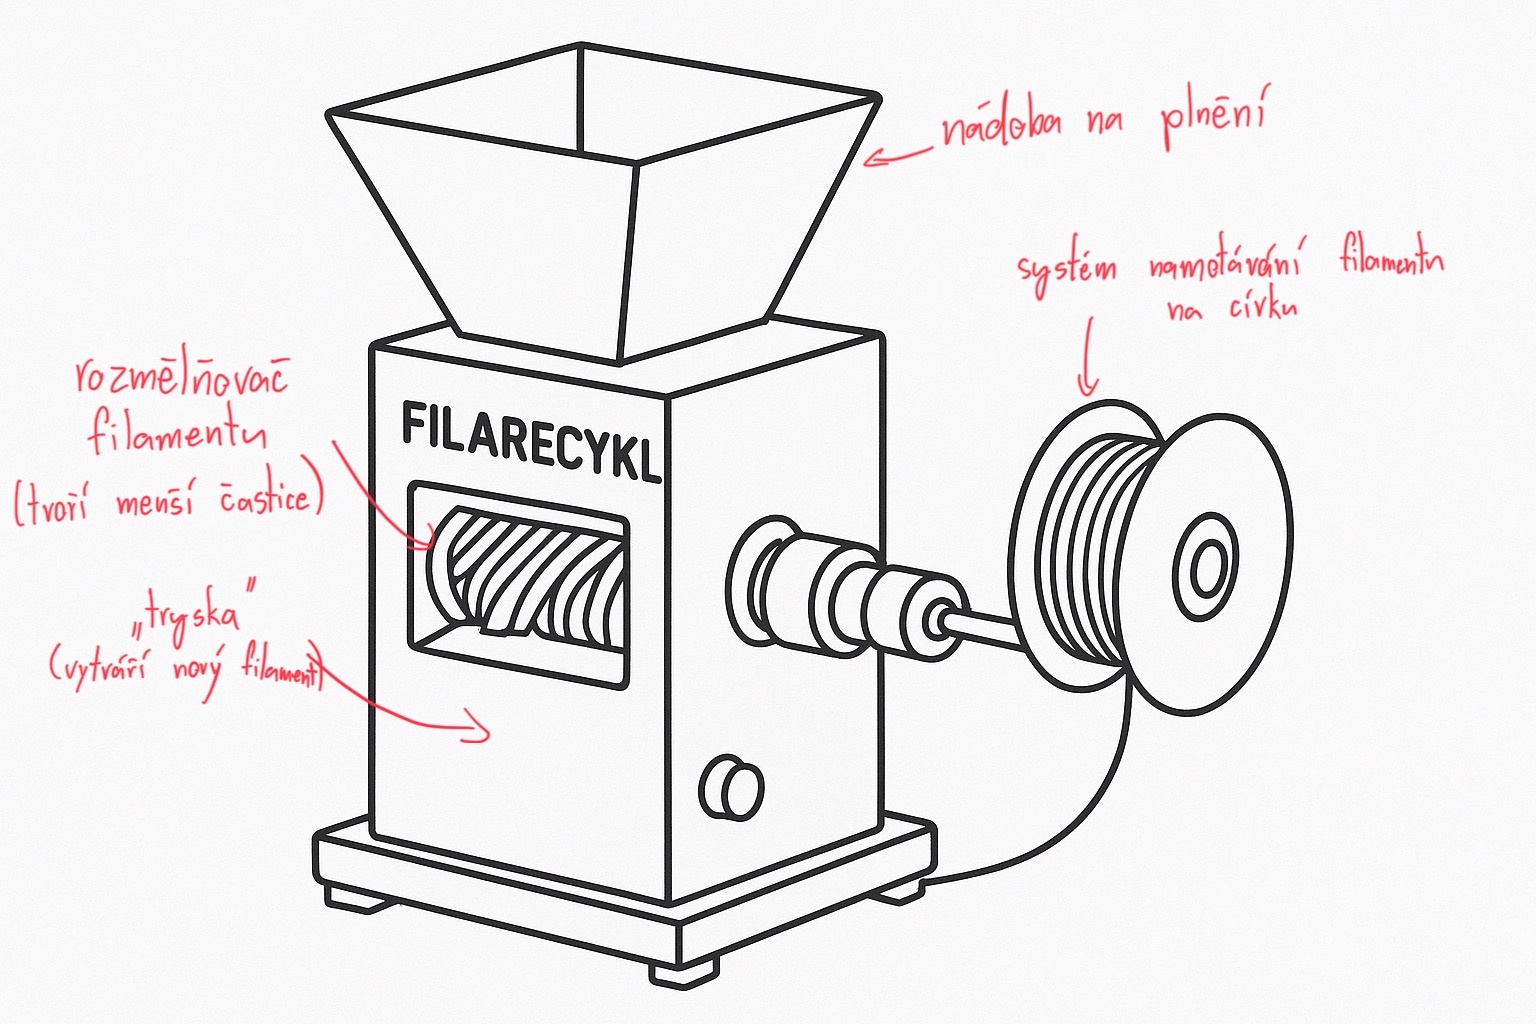 nádoba na plnění
systém namotávání filamentu
na cívku
rozmělňovač
filamentu
(tvoří menší častice)
FILARECYKL
„tryska"
(vytváří nový filament)